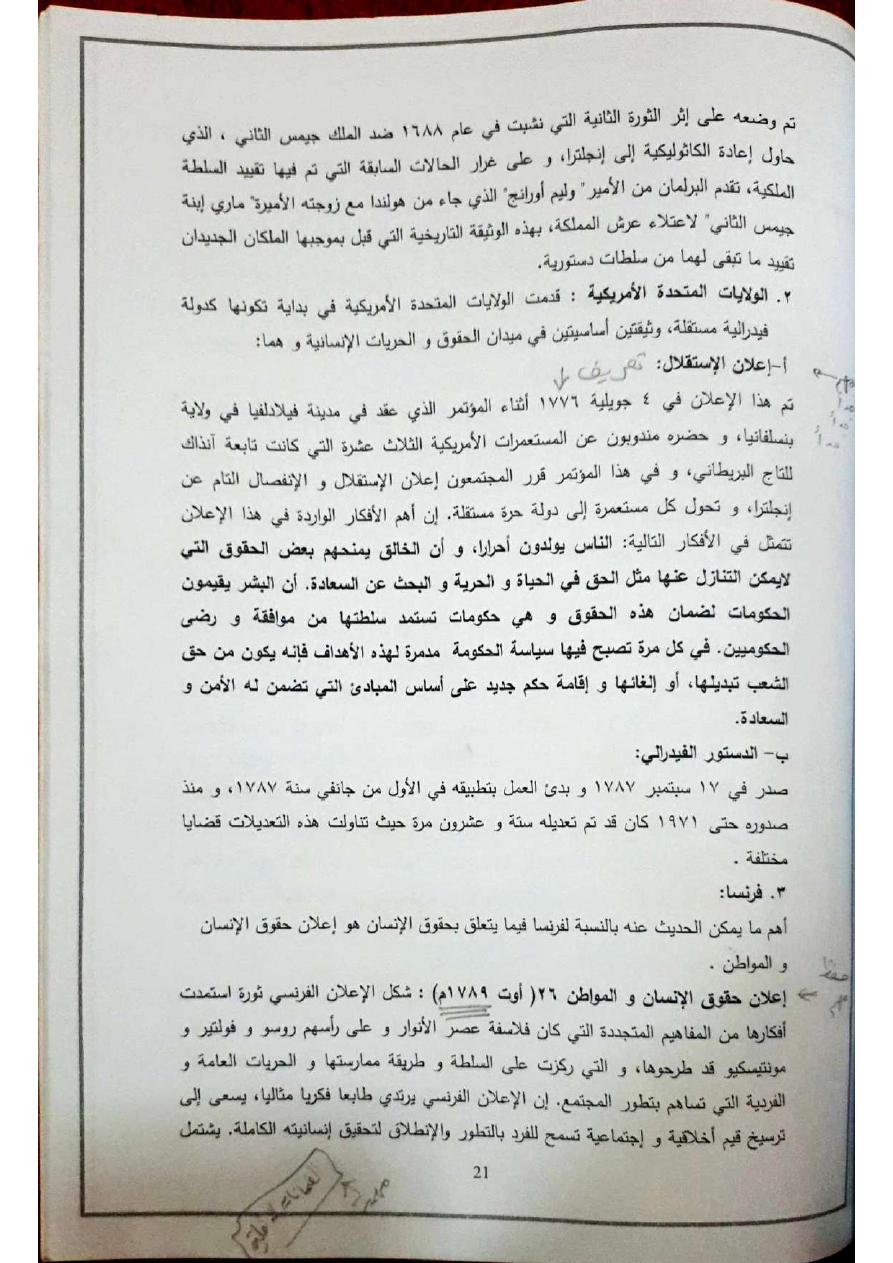 تم وضعه على إثر الثورة الثانية التي نشبت في عام ١٦٨٨ ضد الملك جيمس الثاني ، الذي
حاول إعادة الكاثوليكية إلى إنجلترا، و على غرار الحالات السابقة التي تم فيها تقييد السلطة
الملكية، تقدم البرلمان من الأمير" وليم أورانج" الذي جاء من هولندا مع زوجته الأميرة" ماري إبنة
جيمس الثاني" لاعتلاء عرش المملكة، بهذه الوثيقة التاريخية التي قبل بموجبها الملكان الجديدان
تقييد ما تبقى لهما من سلطات دستورية.
٢. الولايات المتحدة الأمريكية : قدمت الولايات المتحدة الأمريكية في بداية تكونها كدولة
فيدرالية مستقلة، وثيقتين أساسيتين في ميدان الحقوق و الحريات الإنسانية و هما:
أ-إعلان الإستقلال: تعريف
مهم
جدا
جدا
جدا
تم هذا الإعلان في ٤ جويلية ١٧٧٦ أثناء المؤتمر الذي عقد في مدينة فيلادلفيا في ولاية
بنسلفانيا، و حضره مندوبون عن المستعمرات الأمريكية الثلاث عشرة التي كانت تابعة آنذاك
للتاج البريطاني، و في هذا المؤتمر قرر المجتمعون إعلان الإستقلال و الإنفصال التام عن
إنجلترا، و تحول كل مستعمرة إلى دولة حرة مستقلة. إن أهم الأفكار الواردة في هذا الإعلان
تتمثل في الأفكار التالية: الناس يولدون أحرارا، و أن الخالق يمنحهم بعض الحقوق التي
لايمكن التنازل عنها مثل الحق في الحياة و الحرية و البحث عن السعادة. أن البشر يقيمون
الحكومات لضمان هذه الحقوق و هي حكومات تستمد سلطتها من موافقة و رضى
الحكوميين. في كل مرة تصبح فيها سياسة الحكومة مدمرة لهذه الأهداف فإنه يكون من حق
الشعب تبديلها، أو إلغائها و إقامة حكم جديد على أساس المبادئ التي تضمن له الأمن و
السعادة.
ب- الدستور الفيدرالي:
صدر في ١٧ سبتمبر ١٧٨٧ و بدئ العمل بتطبيقه في الأول من جانفي سنة ١٧٨٧، و منذ
صدوره حتى ١٩٧١ كان قد تم تعديله ستة و عشرون مرة حيث تناولت هذه التعديلات قضايا
مختلفة .
٣. فرنسا:
أهم ما يمكن الحديث عنه بالنسبة لفرنسا فيما يتعلق بحقوق الإنسان هو إعلان حقوق الإنسان
و المواطن .
حفظ
مهم
إعلان حقوق الإنسان و المواطن ٢٦( أوت ١٧٨٩م) : شكل الإعلان الفرنسي ثورة استمدت
أفكارها من المفاهيم المتجددة التي كان فلاسفة عصر الأنوار و على رأسهم روسو و فولتير و
مونتيسكيو قد طرحوها، و التي ركزت على السلطة و طريقة ممارستها و الحريات العامة و
الفردية التي تساهم بتطور المجتمع. إن الإعلان الفرنسي يرتدي طابعا فكريا مثاليا، يسعى إلى
ترسيخ قيم أخلاقية و إجتماعية تسمح للفرد بالتطور والإنطلاق لتحقيق إنسانيته الكاملة. يشتمل
21